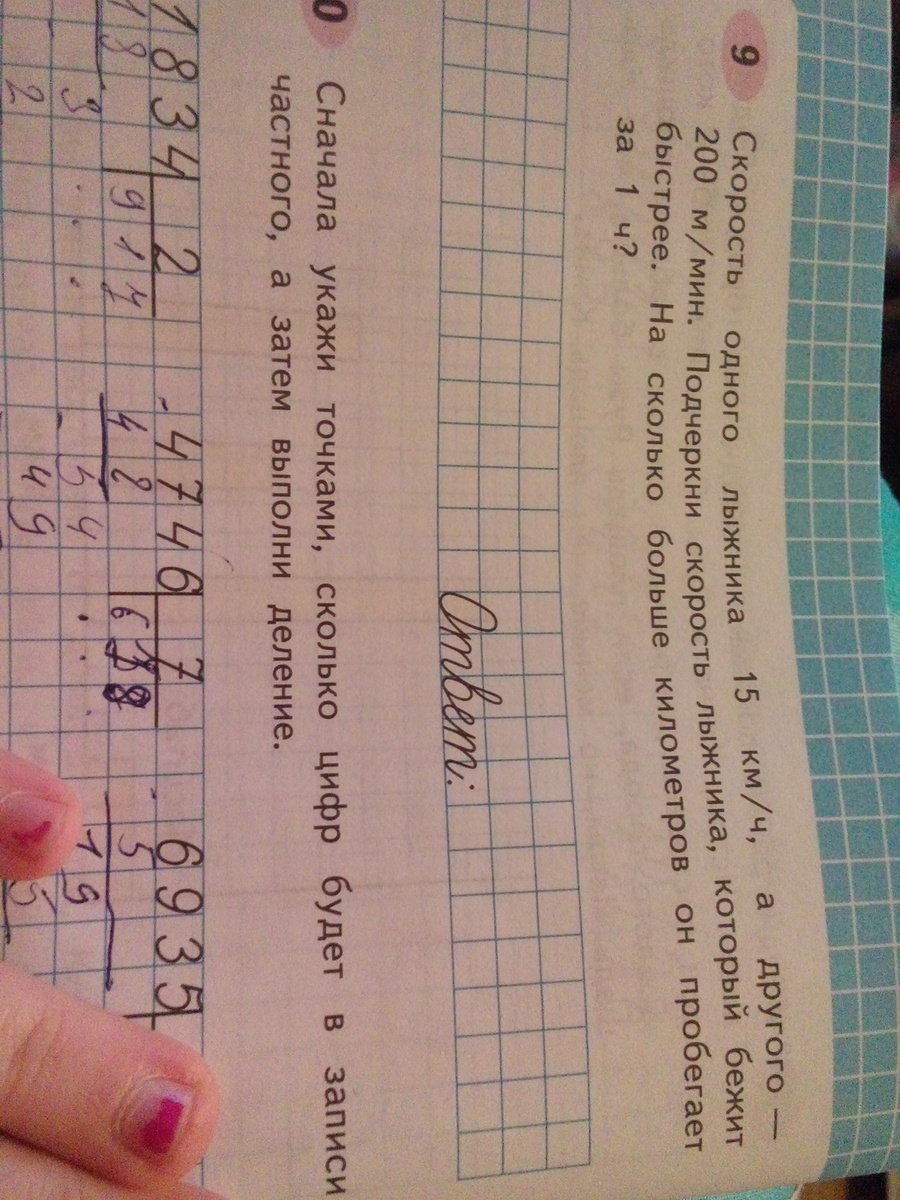 9 Скорость одного лыжника 15 км/ч, а другого —
200 м/мин. Подчеркни скорость лыжника, который бежит
быстрее. На сколько больше километров он пробегает
за 1 ч?
Ответ:
0 Сначала укажи точками, сколько цифр будет в записи
частного, а затем выполни деление.
1834 2 4746 7 6935
18 917 48 678 5
3 54 19
2 49 5